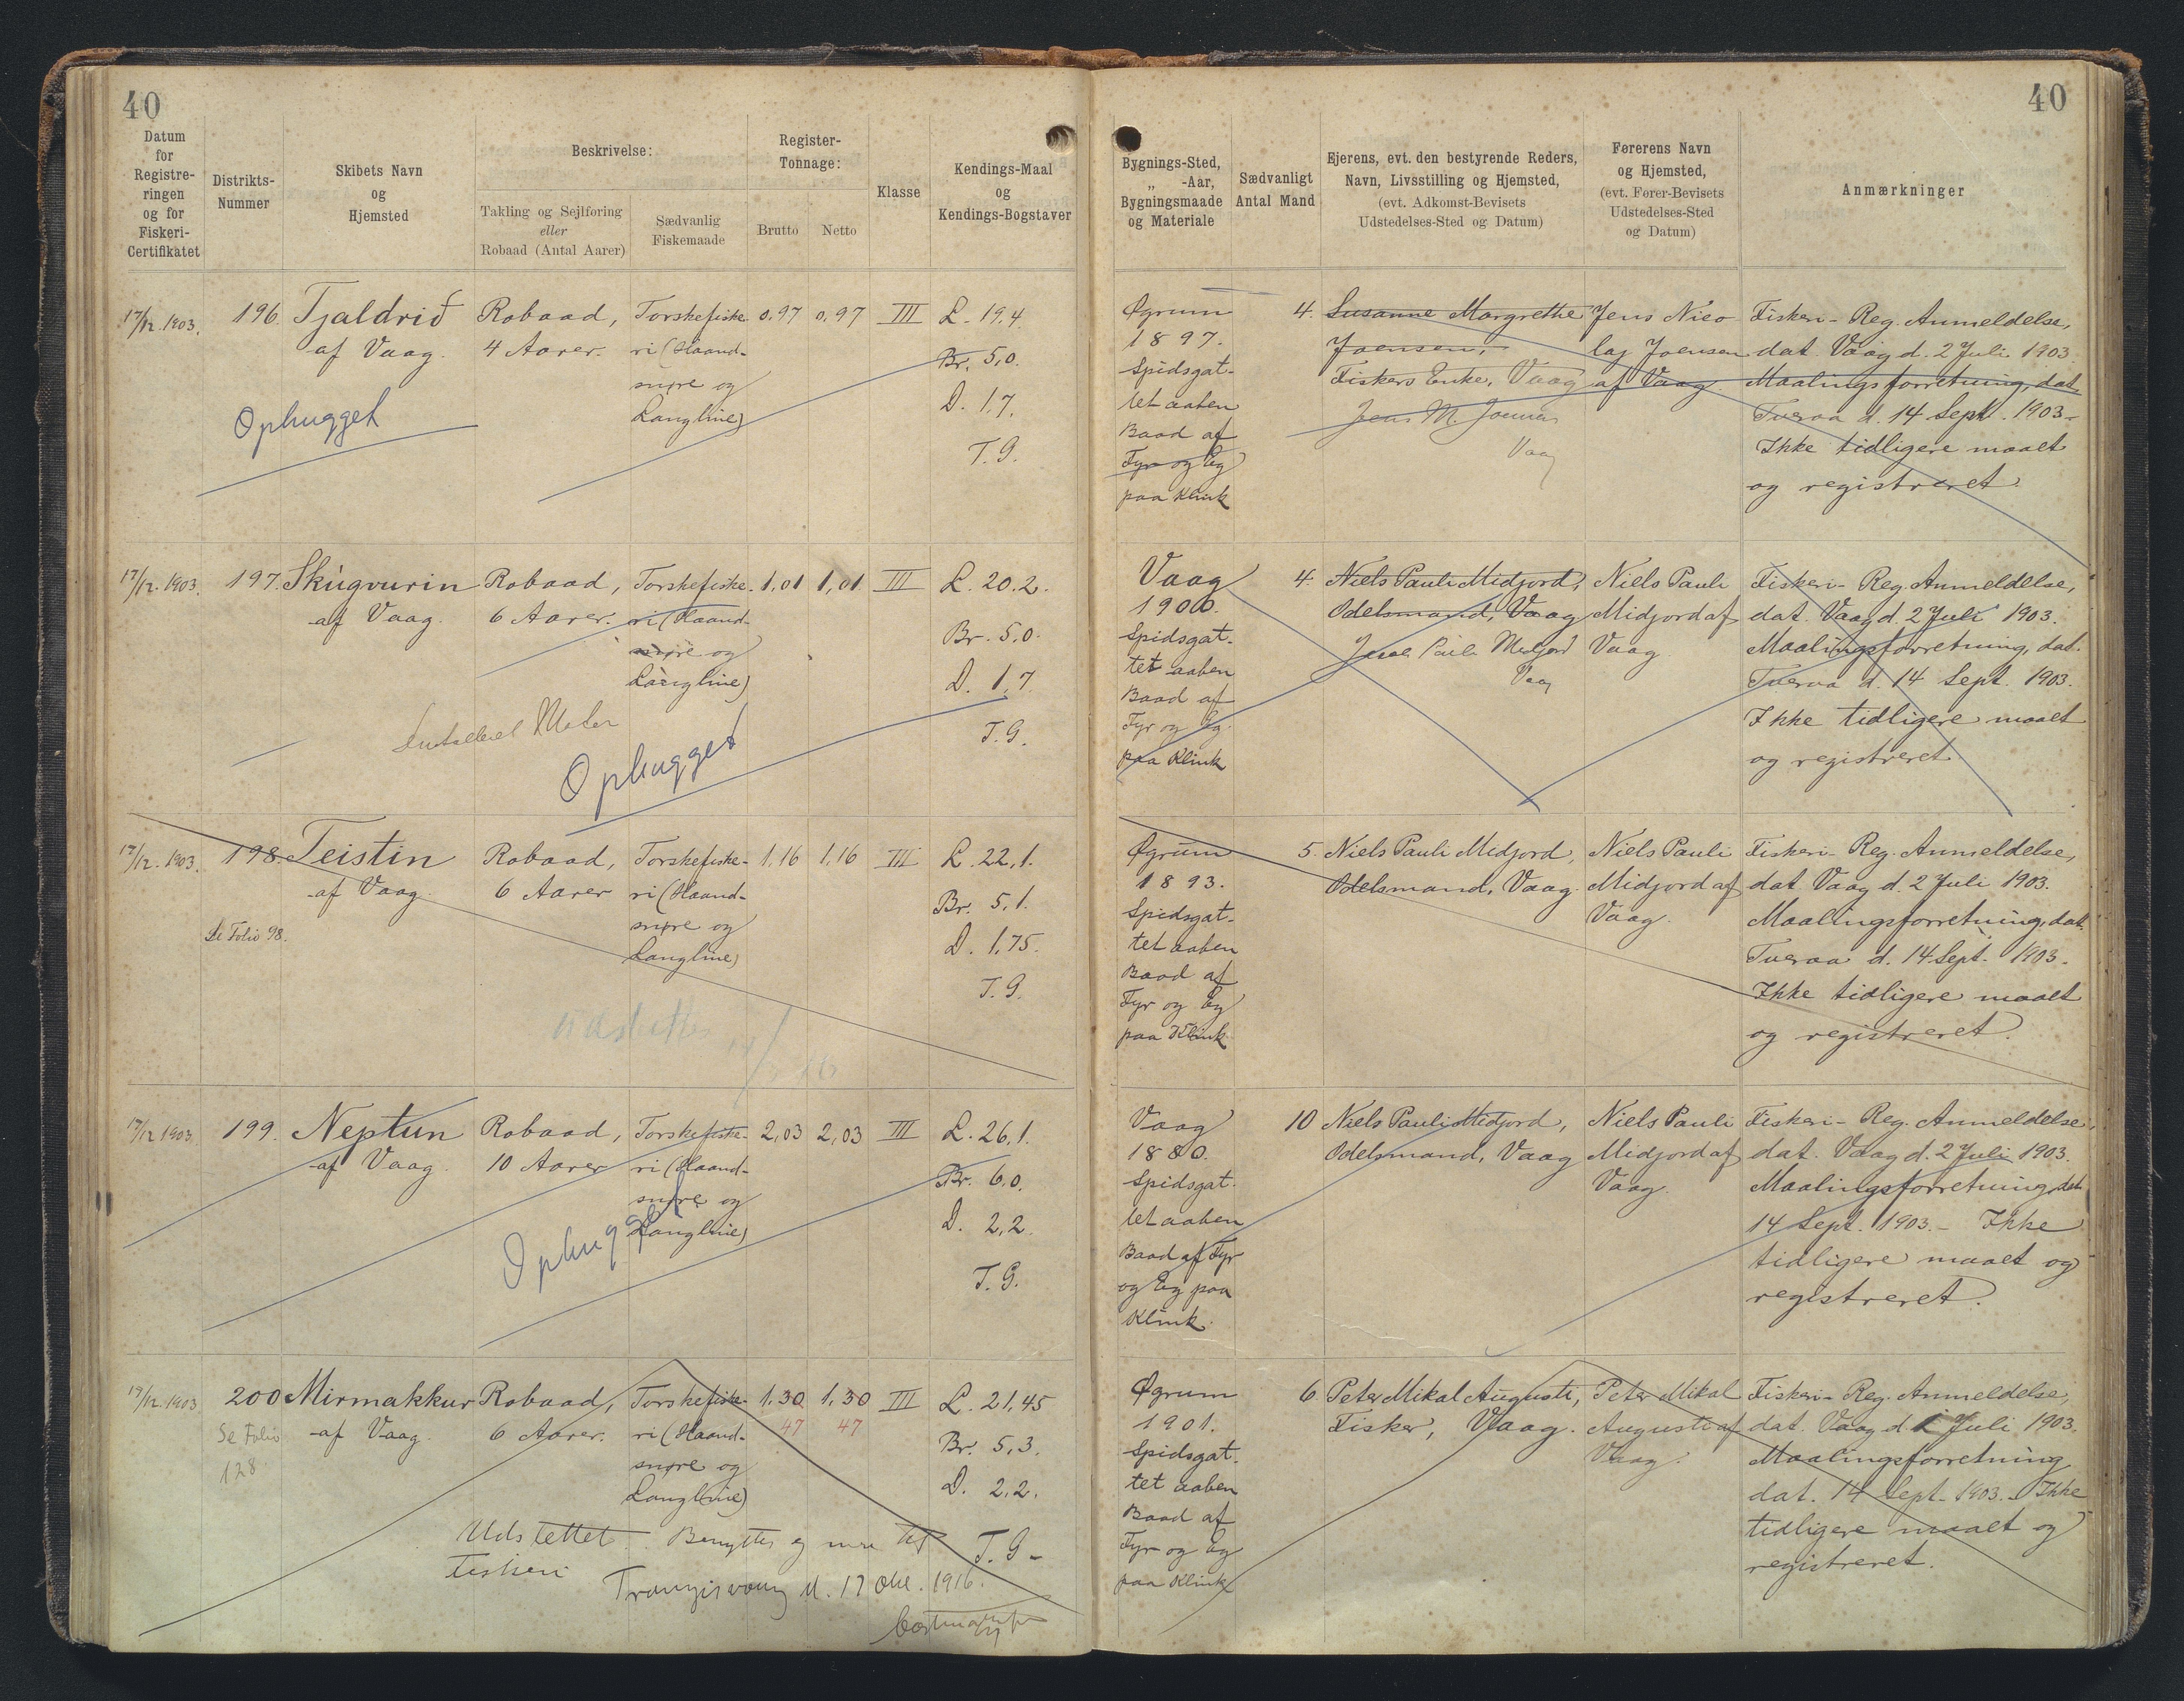 40
Datum
for
Registre-
ringen
og for
Fiskeri-
Certifikatet
Distrikts-
Nummer
Skibets Navn
og
Hjemsted
Beskrivelse:
Takling og Sejlføring
eller
Robaad (Antal Aarer)
Sædvanlig
Fiskemaade
Register-
Tonnage:
Brutto
Netto
Klasse
Kendings-Maal
og
Kendings-Bogstaver
17/12. 1903.
196.
Tjaldrið
af Vaag.
Robaad,
4 Aarer.
Torskefiske
ri (Haand-
snøre og
Langline)
0,97
0,97
III
L. 19,4.
Br. 5,0.
D. 1,7.
T. G.
Ophugget
17/12. 1903.
197.
Skúgvurin
af Vaag.
Robaad,
6 Aarer.
Torskefiske-
ri (Haand-
snøre og
Langline)
1,01
1,01
III
L. 20.2.
Br. 5,0.
D. 1,7
T. G.
Ophugget
17/12. 1903.
198.
Teistin
af Vaag.
Se Folio 98.
Robaad,
6 Aarer
Torskefiske-
ri (Haand-
snøre og
Langline)
1,16
1,16
III
L. 22,1.
Br. 5,1.
D. 1,75.
T. G.
17/12 1903.
199.
Neptun
af Vaag.
Robaad,
10 Aarer
Torskefiske-
ri (Haand-
snøre og
Langline)
2,03
2,03
III
L. 26,1.
Br. 6,0.
D. 2,2.
T. G.
Ophugget
17/12. 1903
200
Mirmakkur
af Vaag.
Se Folio
128
Robaad,
6 Aarer.
Torskefiske-
ri (Haand-
snøre og
Langline)
1,30
47
1,30
47
III
L. 21,45
Br. 5,3.
D. 2,2.
T. G.
Udslettet. Benyttes ej mere til
fiskeri
Trangisvaag d. 17 Okt. 1916.
40
Bygnings-Sted,
„ -Aar,
Bygningsmaade
og Materiale
Sædvanligt
Antal Mand
Ejerens, evt. den bestyrende Reders,
Navn, Livsstilling og Hjemsted,
(evt. Adkomst-Bevisets
Udstedelses-Sted og Datum)
Førerens Navn
og Hjemsted,
(evt. Fører-Bevisets
Udstedelses-Sted
og Datum)
Anmærkninger
Øgrum
1897.
Spidsgat-
tet aaben
Baad af
Fyr og Eg
paa Klink
4.
Susanne Margrethe
Joensen,
Fiskers Enke, Vaag
Jens M. Joensen
Vaag
Jens Nico
laj Joensen
af Vaag.
Fiskeri-Reg. Anmeldelse,
dat. Vaag d. 2 Juli 1903.
Maalingsforretning, dat
Tveraa d. 14 Sept. 1903-
Ikke tidligere maalt
og registreret.
Vaag
1900.
Spidsgat-
tet aaben
Baad af
Fyr og Eg
paa Klink
4.
Niels Pauli Midjord,
Odelsmand, Vaag
Midjord
Vaag
Niels Pauli
Midjord af
Vaag.
Fiskeri-Reg. Anmeldelse,
dat. Vaag d. 2 Juli 1903.
Maalingsforretning, dat.
Tveraa d. 14 Sept. 1903.
Ikke tidligere maalt
og registreret.
Øgrum
1893.
Spidsgat-
tet aaben
Baad af
Fyr og Eg
paa Klink
5.
Niels Pauli Midjord,
Odelsmand, Vaag.
Niels Pauli
Midjord af
Vaag.
Fiskeri-Reg. Anmeldelse,
dat. Vaag d. 2 Juli 1903.
Maalingsforretning, dat.
Tveraa d. 14 Sept. 1903.
Ikke tidligere maalt
og registreret.
Vaag
1880.
Spidsgat-
tet aaben
Baad af Fyr
og Eg paa
Klink.
10
Niels Pauli Midjord,
Odelsmand, Vaag
Niels Pauli
Midjord af
Vaag.
Fiskeri-Reg. Anmeldelse,
dat. Vaag d. 2 Juli 1903.
Maalingsforretning, dat.
14 Sept. 1903.- Ikke
tidligere maalt og
registreret.
Øgrum
1901.
Spidsgat-
tet aaben
Baad af
Fyr og Eg
paa Klink
6
Peter Mikal Augusti,
Fisker, Vaag.
Peter Mikal
Augusti af
Vaag.
Fiskeri-Reg. Anmeldelse,
dat. Vaag d. Juli 1903.
Maalingsforretning
dat. 14 Sept. 1903.- Ikke
tidligere maalt og
registreret.